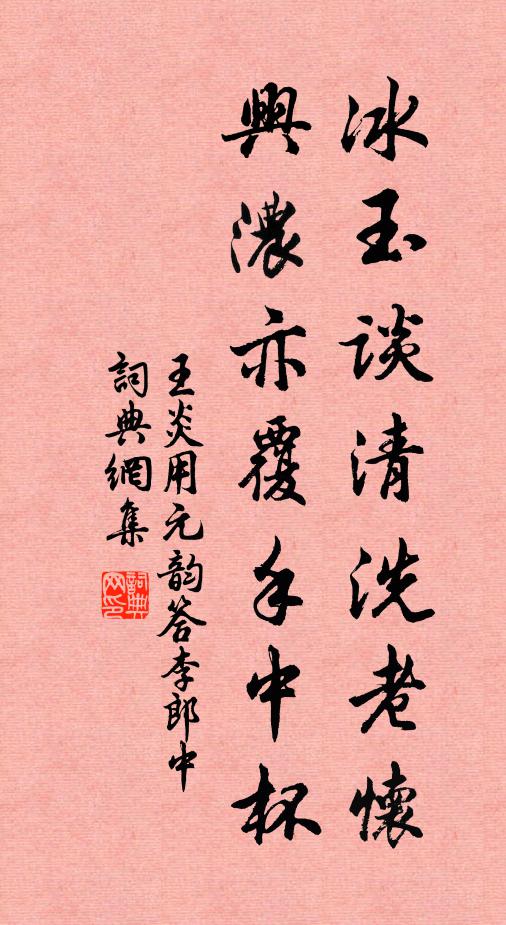 冰玉談清洗老懷
興濃亦覆手中杯
王炎用元韵答李郎中
詞典網集
詞典網印